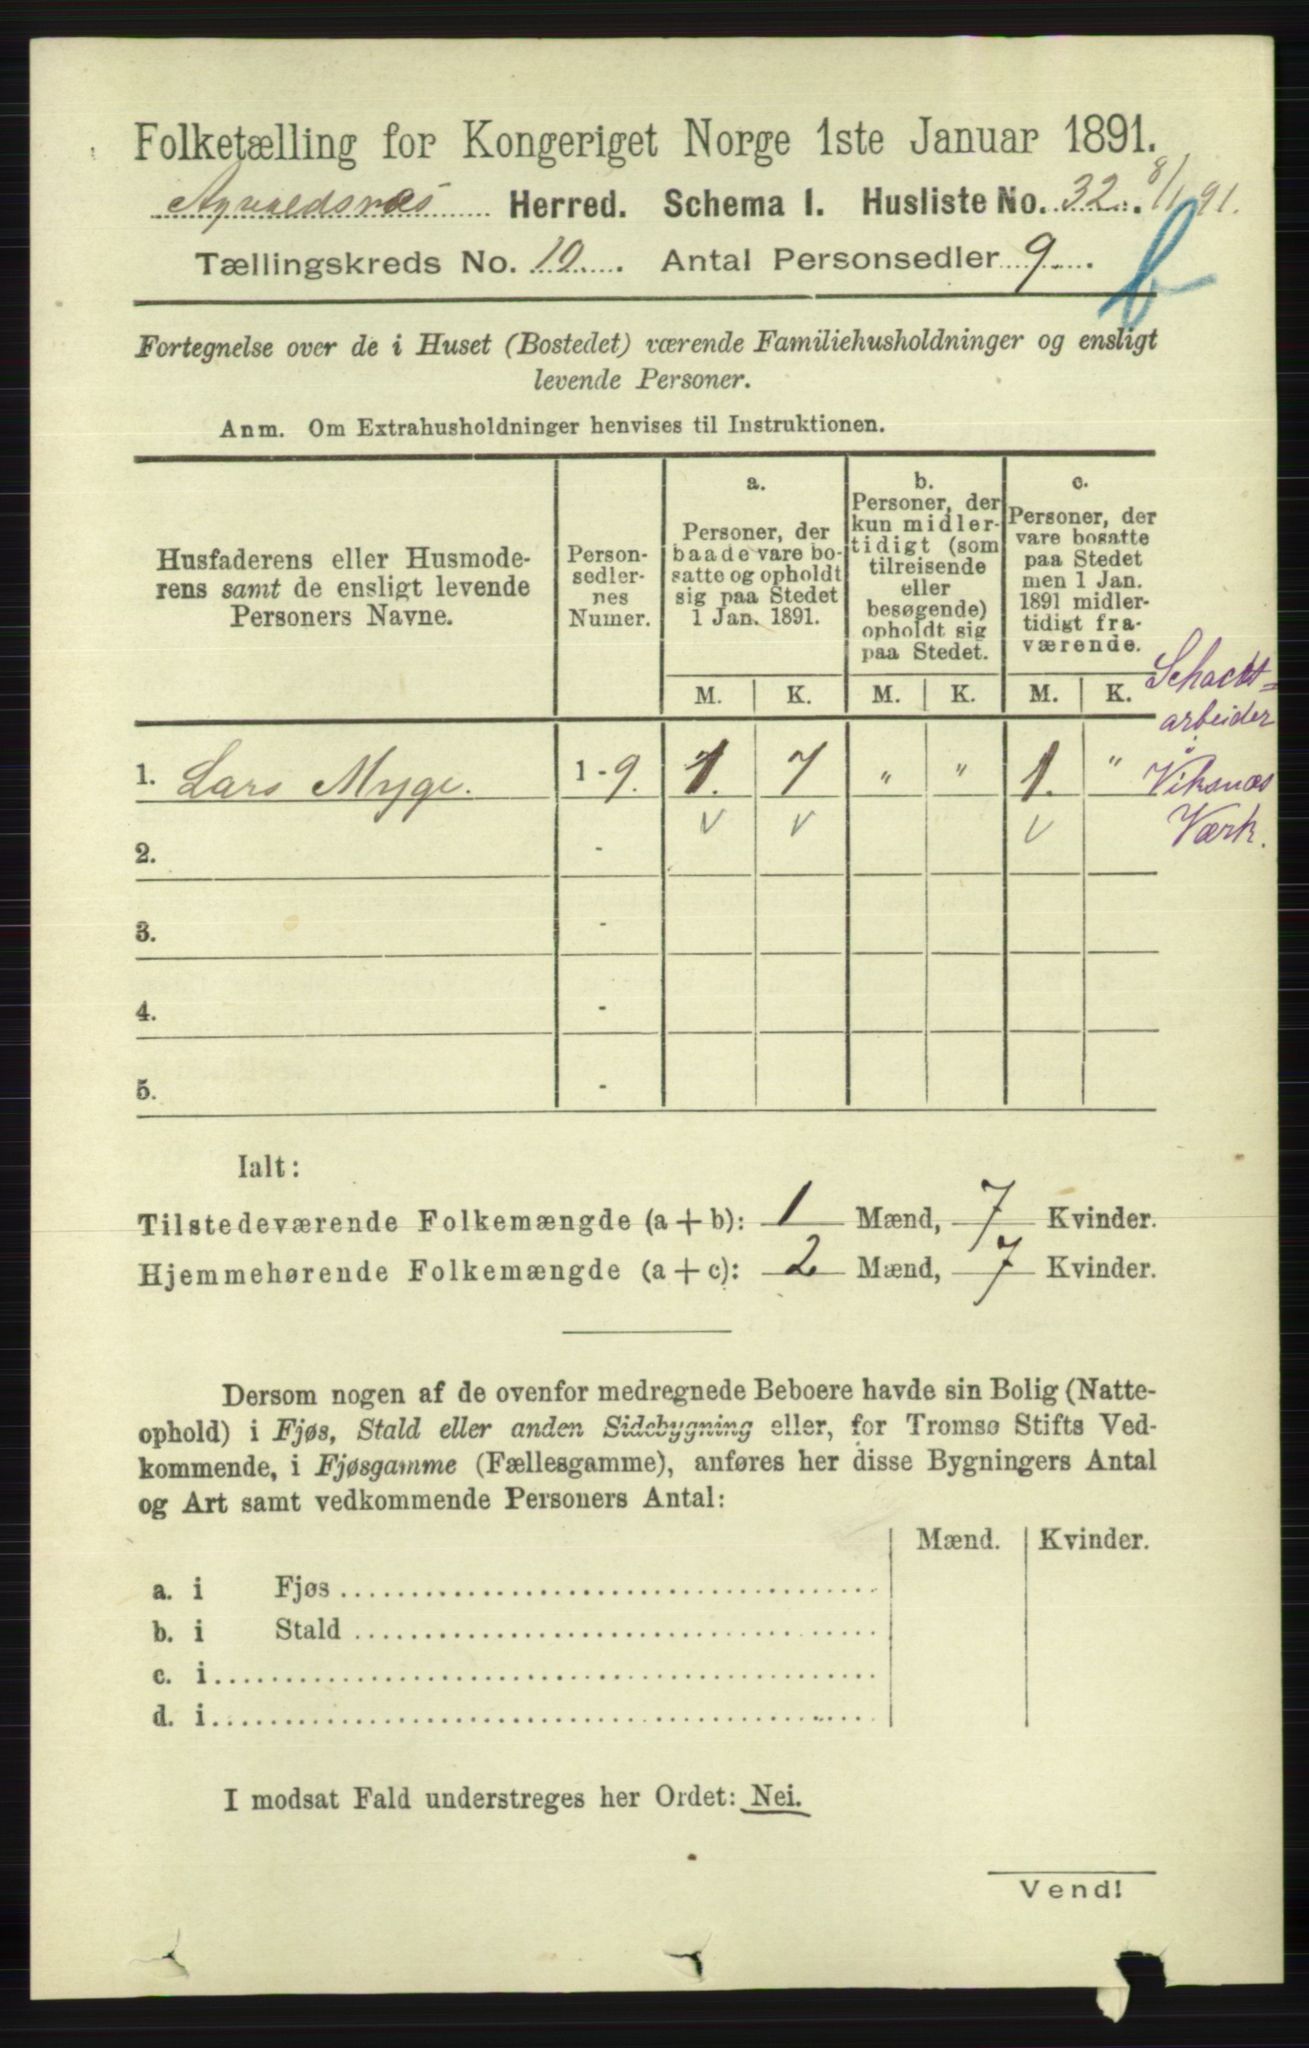 Folketælling for Kongeriget Norge 1ste Januar 1891.
Herred. Schema I. Husliste No. 32. 8/1 91.
Tællingskreds No. 10. Antal Personsedler 9.
b
Fortegnelse over de i Huset (Bostedet) værende Familiehusholdninger og ensligt
levende Personer.
Anm. Om Extrahusholdninger henvises til Instruktionen.
Husfaderens eller Husmode-
rens samt de ensligt levende
Personers Navne.
Person-
sedler-
nes
Numer.
a.
Personer, der
baade vare bo-
satte og opholdt
sig paa Stedet
1 Jan. 1891.
b.
Personer, der
kun midler-
tidigt (som
tilreisende
eller
besøgende)
opholdt sig
paa Stedet.
c.
Personer, der
vare bosatte
paa Stedet
men 1 Jan.
1891 midler-
tidigt fra-
værende.
M. K. M. K. M. K.
1. Lars Myge. 1-9. 1. 7 " " 1. "
Schacht=
arbeider
Viksnæs
Værk.
v v v
2. -
3. -
4. -
5. -
Ialt:
Tilstedeværende Folkemængde (a + b): 1 Mænd, 7 Kvinder.
Hjemmehørende Folkemængde (a + c): 2 Mænd, 7 Kvinder.
Dersom nogen af de ovenfor medregnede Beboere havde sin Bolig (Natte-
ophold) i Fjøs, Stald eller anden Sidebygning eller, for Tromsø Stifts Ved-
kommende, i Fjøsgamme (Fællesgamme), anføres her disse Bygningers Antal
og Art samt vedkommende Personers Antal:
Mænd. Kvinder.
a. i Fjøs
b. i Stald
c. i
d. i
I modsat Fald understreges her Ordet: Nei.
Vend!